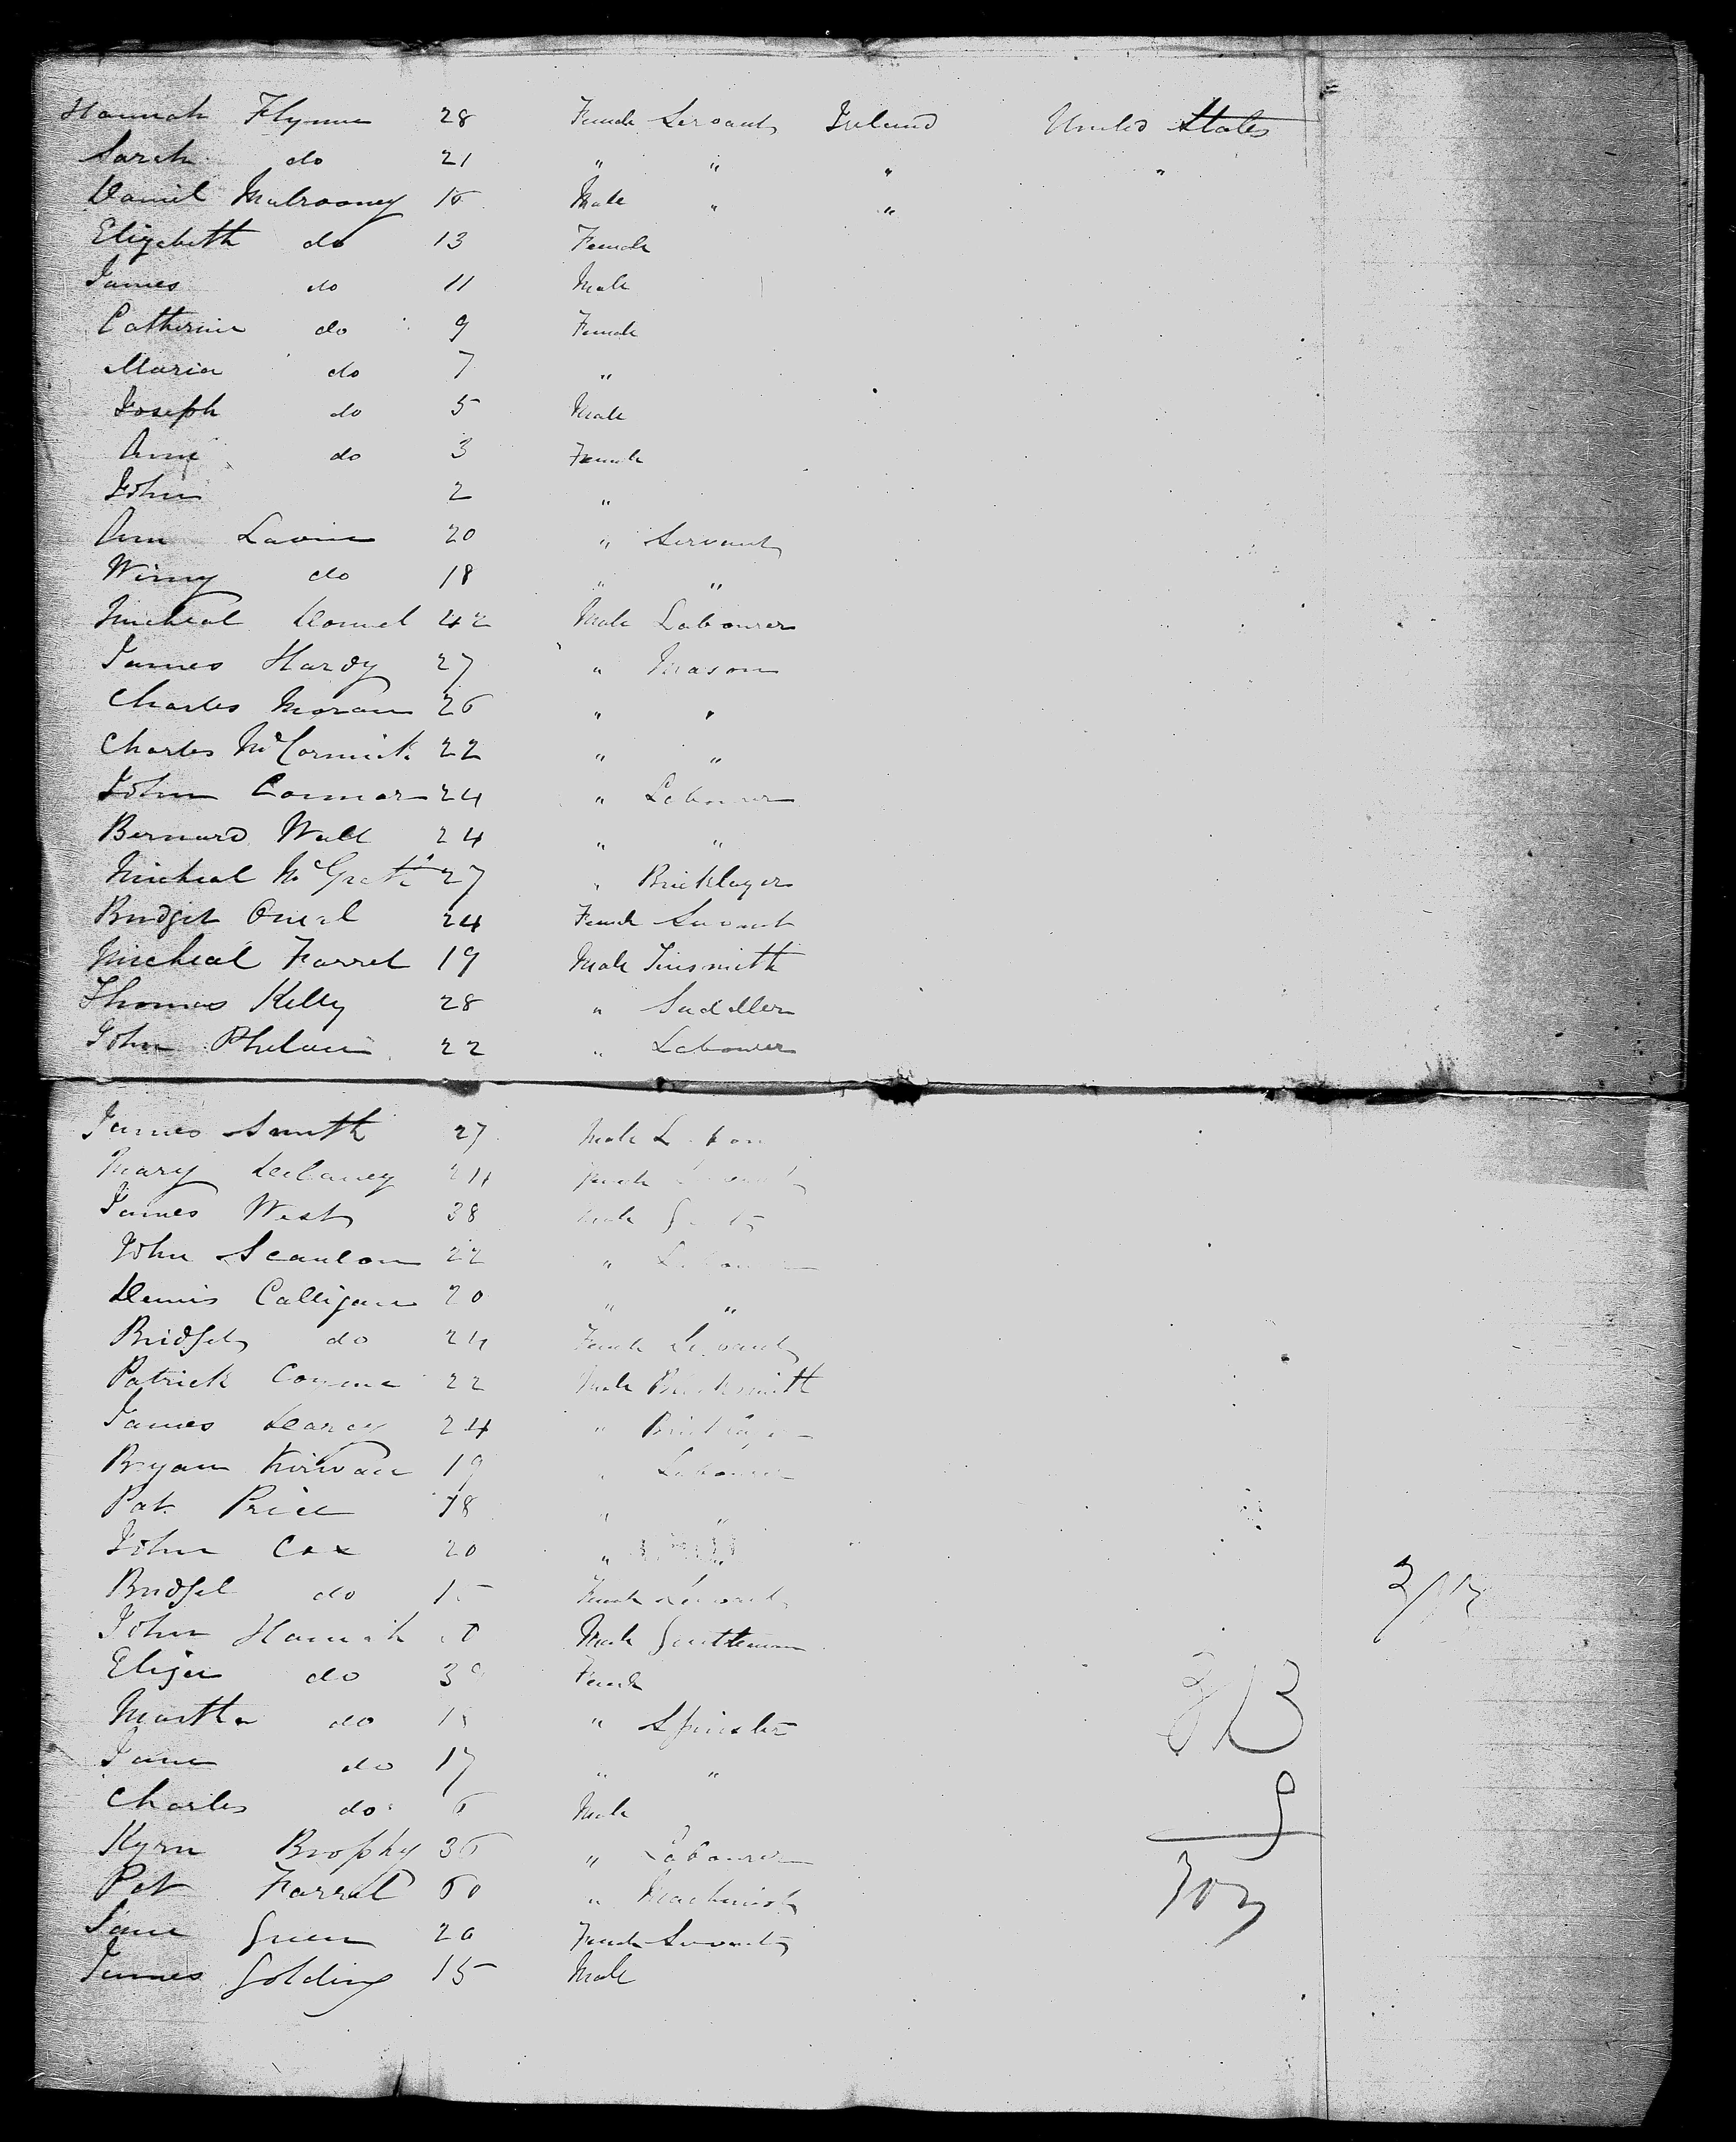 Hannah Flynn 28 Female Servant Ireland United States
Sarah do 21 " " " "
Daniel Mulrooney 16 Male " "
Elizabeth do 13 Female
James do 11 Male
Catherine do 9 Female
Maria do 7 "
Joseph do 5 Male
Ann do 3 Female
John 2 "
Ann Lavin 20 " Servant
Winny do 18 " "
Micheal Donnel 42 Male Labourer
James Hardy 27 " Mason
Charles Moran 26 " "
Charles McCormick 22 " "
John Connor 24 " Labourer
Bernard Wall 24 " "
Micheal McGrath 27 " Bricklayer
Bridget Oneal 24 Female Servant
Micheal Farrel 19 Male Tinsmith
Thomas Kelly 28 " Saddller
John Phelan 22 " Labourer
James Smith 27 Male
Mary Delaney 24 Female Servant
James West 38 Male
John Scanlon 22 " Labourer
Dennis Calligan 20 " "
Bridget do 24 Female Servant
Patrick 22 Male Blacksmith
James Darcy 24 " Bricklayer
Bryan Kirwan 19 " Labourer
Pat. Price 18 " "
John Cox 20 " "
Bridget do Female Servant
John Hannah Male Gentleman
Eliza do Female
Martha do " Spinster
Jane do 17 " "
Charles do 6 Male
Kyrn Brophy 36 " Labourer
Pat Farrel 60 " Machinist
Jane Green 20 Female Servant
James Golding 15 Male